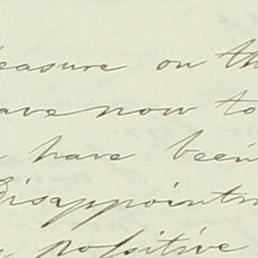 easure on th
ave now to
have been
Disappointm
possitive